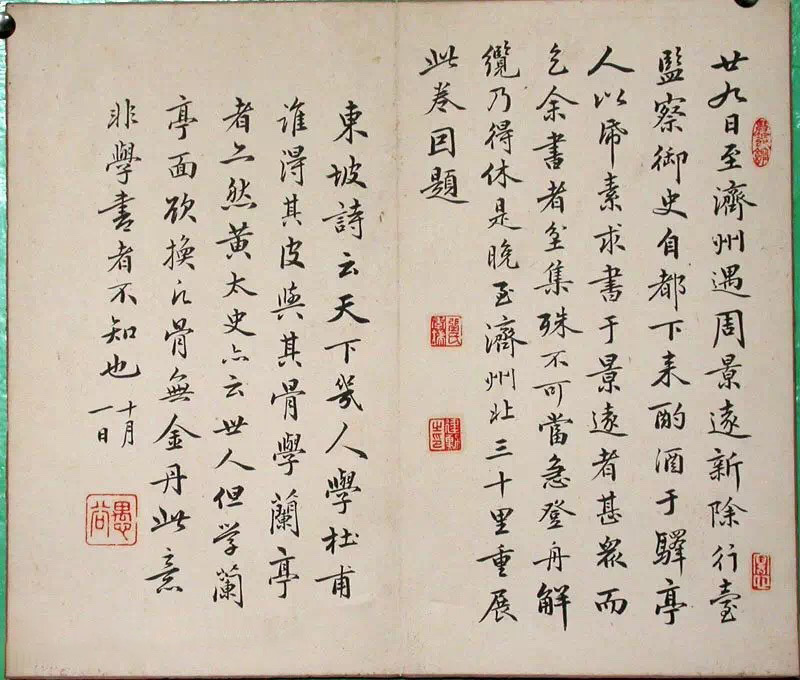 廿九日至濟州遇周景遠新除行臺
監察御史自都下来酌酒于驛亭
人以帋素求書于景遠者甚衆而
乞余書者坌集殊不可當急登舟解
纜乃得休是晚至濟州北三十里重展
此卷因題
東坡詩云天下幾人學杜甫
誰得其皮與其骨學蘭亭
者亦然黃太史亦云世人但学蘭
亭面欲換凡骨無金丹此意
非學書者不知也
十月
一日
愚谷